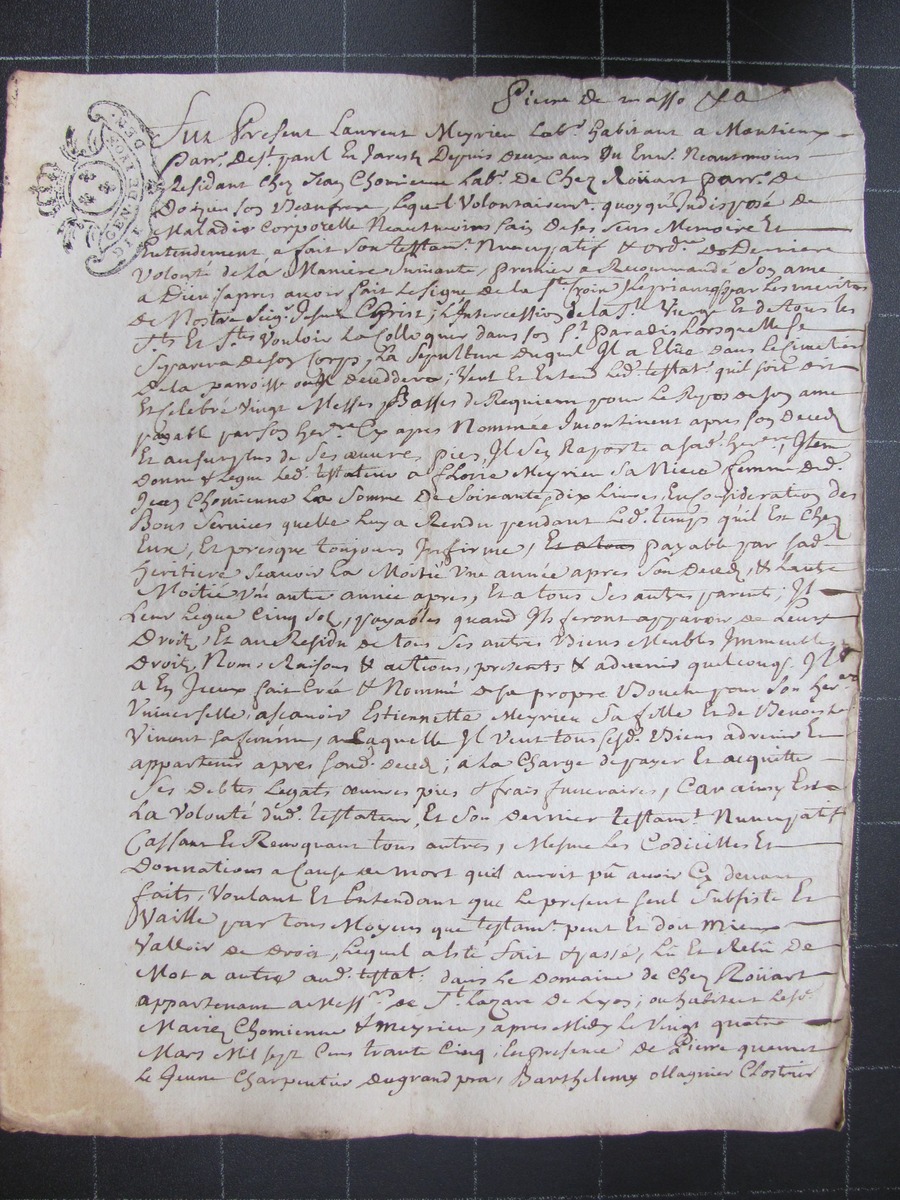 Pierre De masso
GEN. DE LYON
Fut Present Laurent Meyrieu Lab.r habitant a Montieux
Parr.e De s.t paul En Jarest Depuis deux ans ou Env.n Neautmoins
Residant Chez Jean Chomienne Lab.r De Chez Roüart parr.e De
Doizieu son Beaufrere, Lequel Volontairem.t quoyqu'Indisposé de
Maladie Corporelle Neautmoins sain De ses sens Memoire Et
Entendement, a fait son testam.t Nuncupatif & ord.ce De Derniere
Volonté de la Maniere suivante, premier a Recommandé son ame
a Dieu apres avoir fait Le signe de la S.te Croix Le priant par Les merites
de Nostre Seig.r Jesus Christ, L'Intercession de la S.te Vierge Et de tous les
S.ts Et S.tes Vouloir La Colloquer dans son S.t paradis Lorsquelle se
separera De son Corps, La sepulture Duquel Il a Elüe dans Le simetier
De la parroisse ou Il deceddera; Veut Et Entend Led. testat.r qu'il soit dit
Et Celebré Vingt Messes Basses de Requiem pour Le Repos de son ame
payable par son her.re Cy apres Nommée Incontinent apres son Deced
Et au surplus de Ses œuvres pies, Il s'en Raporte a sad. her.re; Item
Donne & Legue Led. testateur a Meyrieu Sa Niece femme dud.
Jean Chomienne La Somme De Soixante, dix Livres, En Consideration des
Bons Services quelle Luy a Rendu pendant Led. temps qu'il Est Chez
Eux, Et presque toujours Infirme, Et a tous payable par sad.
heritiere scavoir La Moitié Une année apres son Deced, & L'autre
Moitié Un autre année apres, Et a tous Ses autres parents, Il
Leur Legue Cinq Sols, payables quand Ils feront apparoir de Leurs
Droits, Et au Residu de tous Ses autres Biens Meubles Immeubles
Droits, Noms, Raisons & actions, presents & advenir quelconqs. Il
a En Iceux fait Créé & Nommé de sa propre Bouche pour son her.re
Universelle, ascavoir Estiennette Meyrieu Sa fille Et de Benoiste
Vincent sa femme, a Laquelle Il Veut tous sesd. Biens advenir Et
appartenir apres sond. Deced; a La Charge de payer Et acquitter
Ses debtes Legats œuvres pies & frais funeraires, Car ainsy Est
La Volonté dud. testateur, Et Son dernier testam.t Nuncupatif
Cassant Et Revoquant tous autres, Mesme Les Codicilles Et
Donnations a Cause de mort quil auroit pû avoir Cy devant
faits, Voulant Et Entendant que Le present seul Subsiste Et
Vaille par tous Moyens que testam.t peut Et doit Mieux
Valloir de Droit, Lequel a Esté fait & passé, Lû Et Relû De
Mot a autre aud. testat.r dans Le Domaine de Chez Roüart
appartenant a Mess.rs de S.t Lazare De Lyon, ou habitent Lesd.
Mariez Chomienne & Meyrieu, apres Midy Le Vingt quatre
Mars Mil sept Cens trante Cinq; En presence de Pierre
Le Jeune Charpentier du grand pra, Barthelemy ollagnier Clostrier